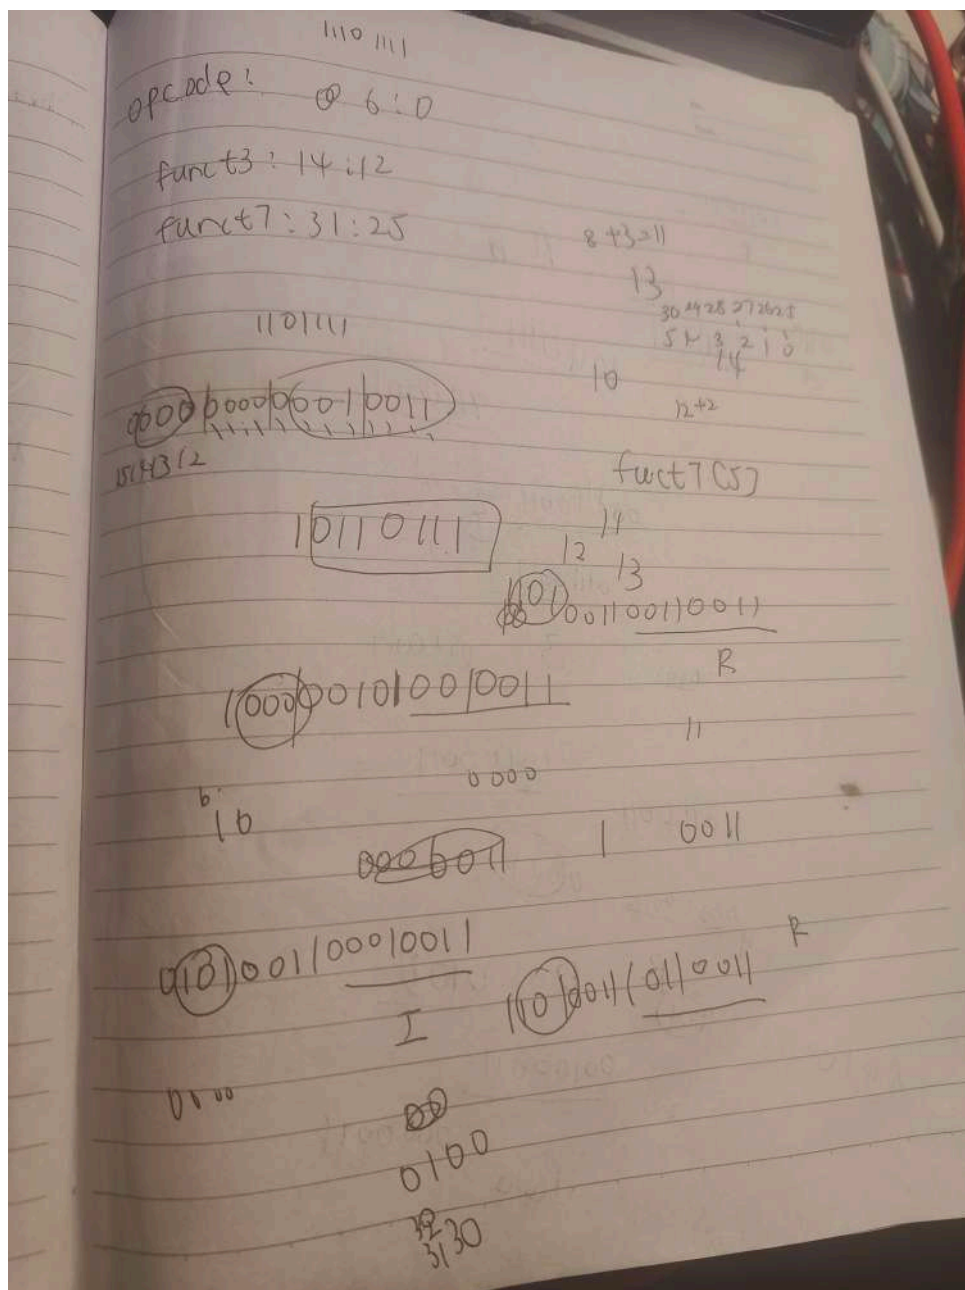 1110 1111
opcode: 6:0
funct3: 14:12
funct7: 31:25
8+3=11
13
30 29 28 27 26 25
5 4 3 2 1 0
14
1101111
10
12+2
0000 0000 0001 0011
15 14 13 12
fuct7[5]
10110111
14
12
13
101001100110011
R
1000001010010011
11
0000
6:
16
0000011
1
0011
0101001100010011
I
1101001101100011
R
0100
00
0100
31 30